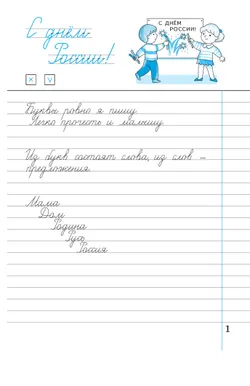 С днём
России!
С ДНЁМ
РОССИИ!
× v
Буквы ровно я пишу.
Легко прочесть и малышу.
Из букв состоят слова, из слов –
предложения.
Мама
Дом
Родина
Русь
Россия
1